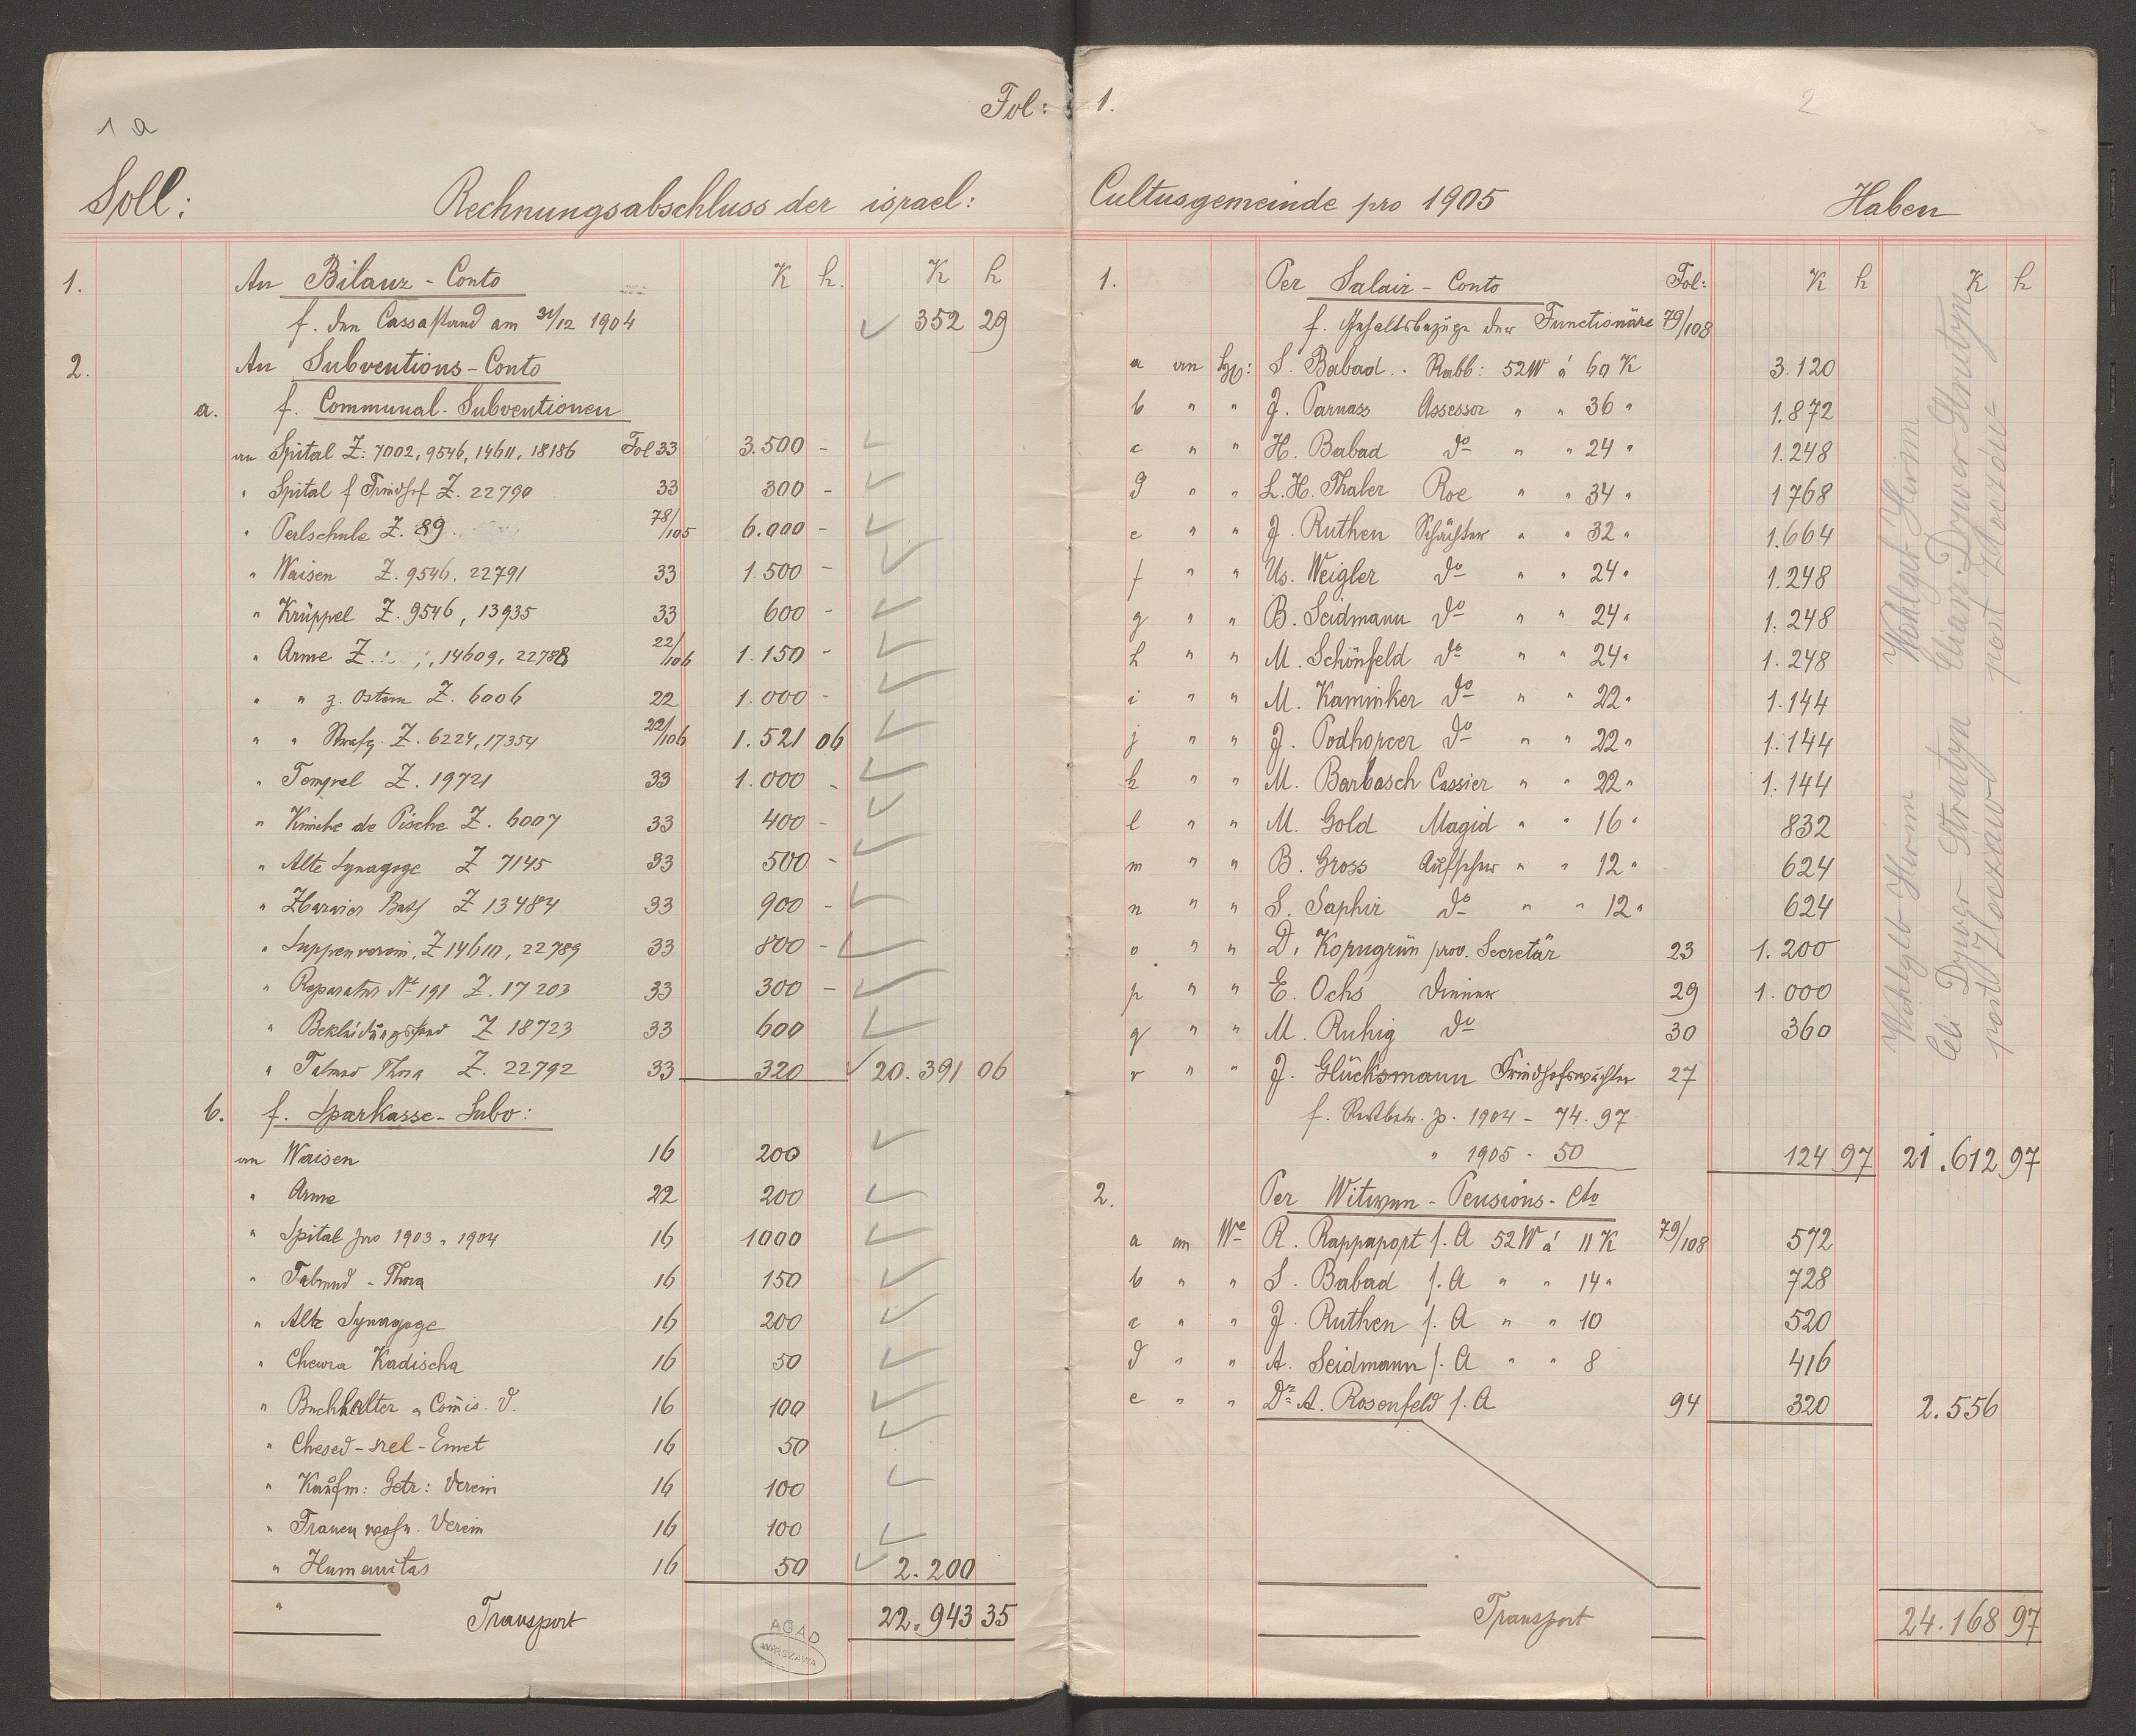 Fol: 1.
1 a
2
Soll: Rechnungsabschluss der israel: Cultusgemeinde pro 1905 Haben
K h. K h
1. An Bilanz-Conto
f. den Cassastand am 31/12 1904 352 29
2. An Subventions-Conto
a. f. Communal-Subventionen
an Spital Z: 7002, 9546, 14611, 18186 Fol 33 3.500 -
" Spital f Friedhof Z. 22790 33 300 -
" Perlschule Z. 89. 78/105 6.000 -
" Waisen Z. 9546. 22791 33 1.500 -
" Krüppel Z. 9546, 13935 33 600 -
" Arme Z. , 14609, 22788 22/106 1.150 -
" " z. Ostern Z. 6006 22 1.000 -
" " Z. 6224, 17354 22/106 1.521 06
" Tempel Z. 19721 33 1.000 -
" de Pische Z. 6007 33 400 -
" Alte Synagoge Z 7145 33 500 -
" Z 13484 33 900 -
" Suppenverein, Z 14610, 22789 33 800 -
" Reparatur No 191 Z. 17203 33 300 -
" Bekleidungsfond Z 18723 33 600
" Talmud Thora Z. 22792 33 320 20.391 06
b. f. Sparkasse-Subv:
an Waisen 16 200
" Arme 22 200
" Spital pro 1903 " 1904 16 1000
" Talmud-Thora 16 150
" Alte Synagoge 16 200
" Chewra Kadischa 16 50
" Buchhalter u Comis. V. 16 100
" Chesed-schel-Emet 16 50
" Kaufm: Getr: Verein 16 100
" Frauen Verein 16 100
" Humanitas 16 50 2.200
" Transport 22.943 35
AGAD
WARSZAWA
Fol: K h K h
1. Per Salair-Conto
f. Gehaltsbezüge der Functionäre 79/108
a an S. Babad. Rabb: 52W á 60 K 3.120
b " " J. Parnass Assessor " " 36 " 1.872
c " " H. Babad do " " 24 " 1.248
d " " L.H. Thaler Roe " " 34 " 1768
e " " J. Ruthen Schächter " " 32 " 1.664
f " " Us. Weigler do " " 24 " 1.248
g " " B. Seidmann do " " 24 " 1.248
h " " M. Schönfeld do " " 24 " 1.248
i " " M. Kaminker do " " 22 " 1.144
j " " J. Podhorcer do " " 22 " 1.144
k " " M. Barbasch Cassier " " 22 " 1.144
l " " M. Gold Magid " " 16 " 832
m " " B. Gross Aufseher " " 12 " 624
n " " S. Saphir do " " 12 " 624
o " " D. Korngrün prov. Secretär 23 1.200
p " " E. Ochs Diener 29 1.000
q " " M. Ruhig do 30 360
r " " J. Glücksmann Friedhofswächter 27
f. Restbetr. p. 1904 - 74.97
" 1905 - 50 124 97 21.612 97
2. Per Witwen-Pensions-Cto
a an We R. Rappaport s. A 52W á 11 K 79/108 572
b " " S. Babad s. A " " 14 " 728
c " " J. Ruthen s. A " " 10 520
d " " A. Seidmann s. A " " 8 416
e " " Dr A. Rosenfeld s. A 94 320 2.556
Transport 24.168 97